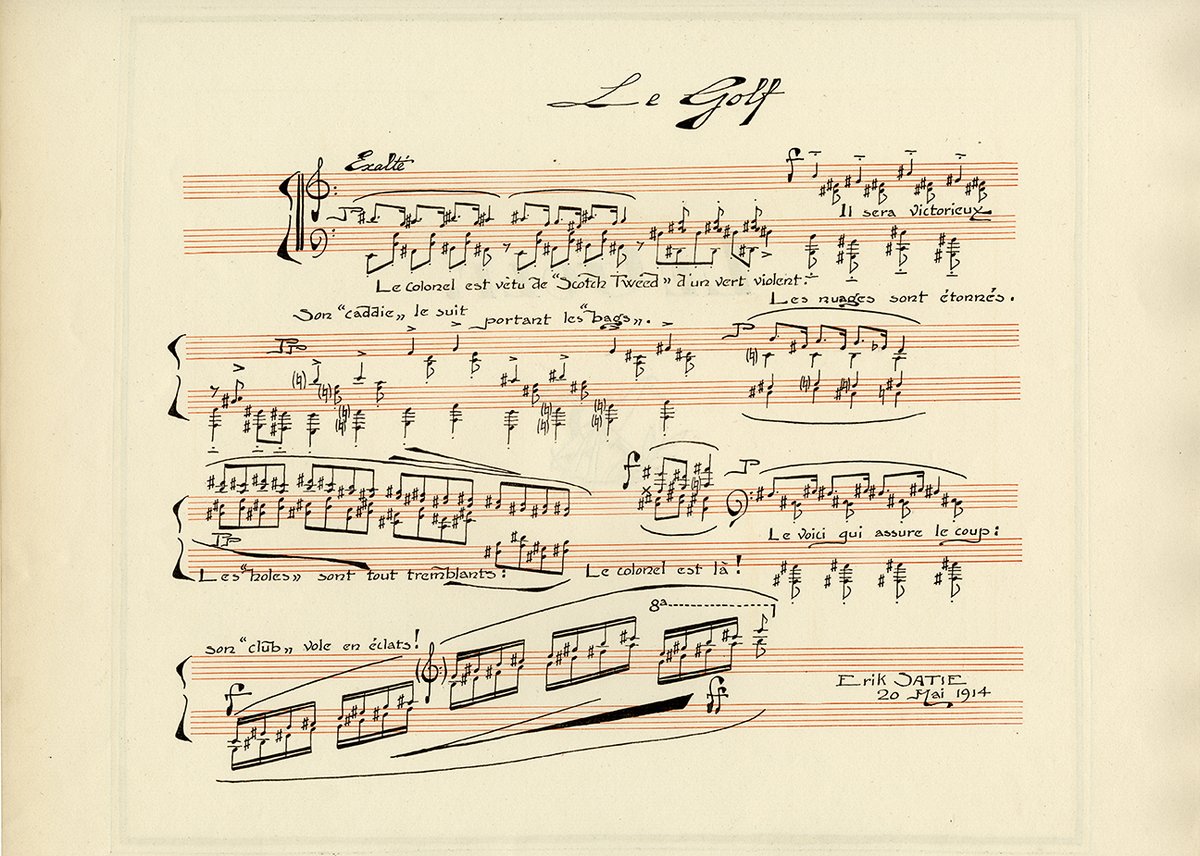 Le Golf
Exalté
f
Il sera victorieux
p
Le colonel est vêtu de "Scotch Tweed" d'un vert violent.
Les nuages sont étonnés.
Son "caddie" le suit portant les "bags".
pp
p
f
p
pp
Le voici qui assure le coup:
Les "holes" sont tout tremblants:
Le colonel est là!
8ª
son "club" vole en éclats!
f
ff
Erik SATIE
20 Mai 1914